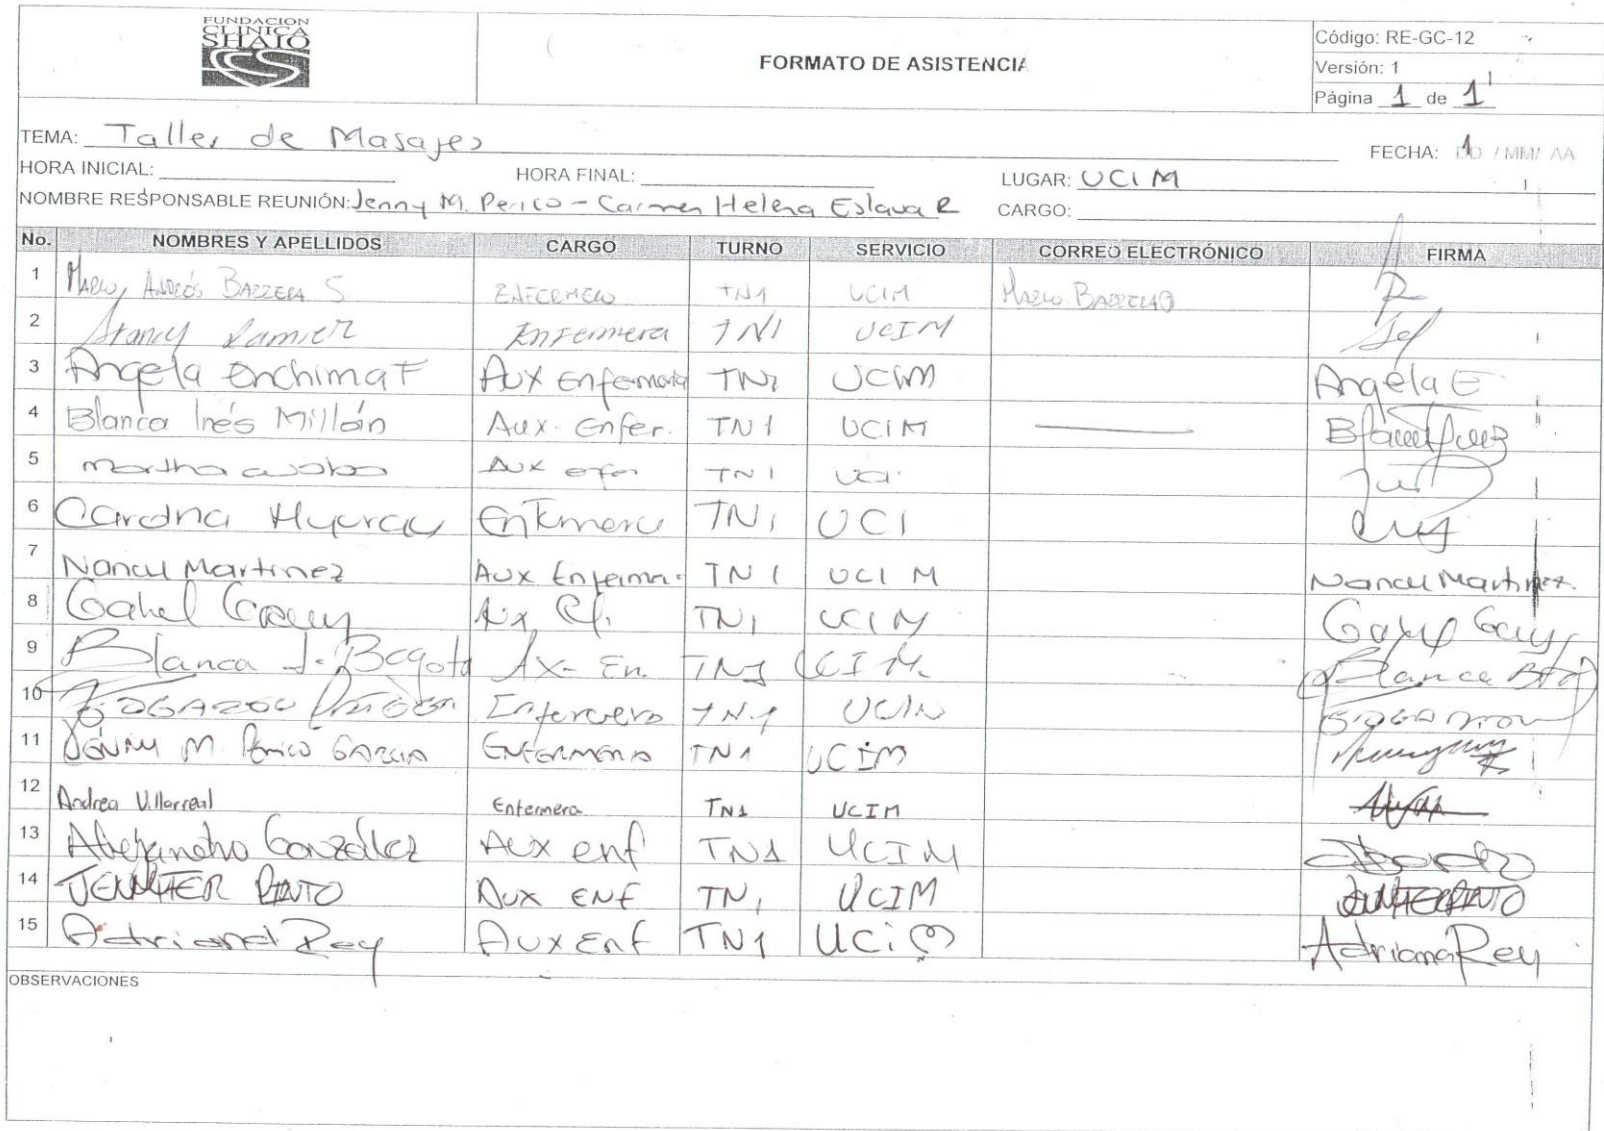 FUNDACION
CLINICA
SHAIO
FORMATO DE ASISTENCIA
Código: RE-GC-12
Versión: 1
Página 1 de 1
TEMA: Taller de Masajes
FECHA: DD / MM/ AA
HORA INICIAL: HORA FINAL: LUGAR: UCIM
NOMBRE RESPONSABLE REUNIÓN: Jenny M. Perico - Carmen Helena Eslava R CARGO:
No. NOMBRES Y APELLIDOS CARGO TURNO SERVICIO CORREO ELECTRÓNICO FIRMA
1 Andrés Barrera S. Enfermero TN1 UCIM
2 Enfermera TN1 UCIM
3 Angela Enchima F Aux Enfermería TN1 UCIM Angela E
4 Blanca Inés Millán Aux. Enfer. TN1 UCIM
5 Martha Aux enfer TN1 UCI
6 Enfermera TN1 UCI
7 Nancy Martinez Aux Enferma. TN1 UCI M Nancy Martinez
8 TN1 UCIM
9 Blanca J. Bogota Ax- En. TN1 UCIM. Blanca
10 Enfermero TN1 UCIM
11 Jenny M. Perico Garcia Enfermera TN1 UCIM
12 Andrea Villarreal Enfermera TN1 UCIM
13 Alejandro González Aux enf TN1 UCIM
14 JENNIFER PINTO Aux ENF TN1 UCIM
15 Adriana Rey Aux Enf TN1 UCiM Adriana Rey
OBSERVACIONES